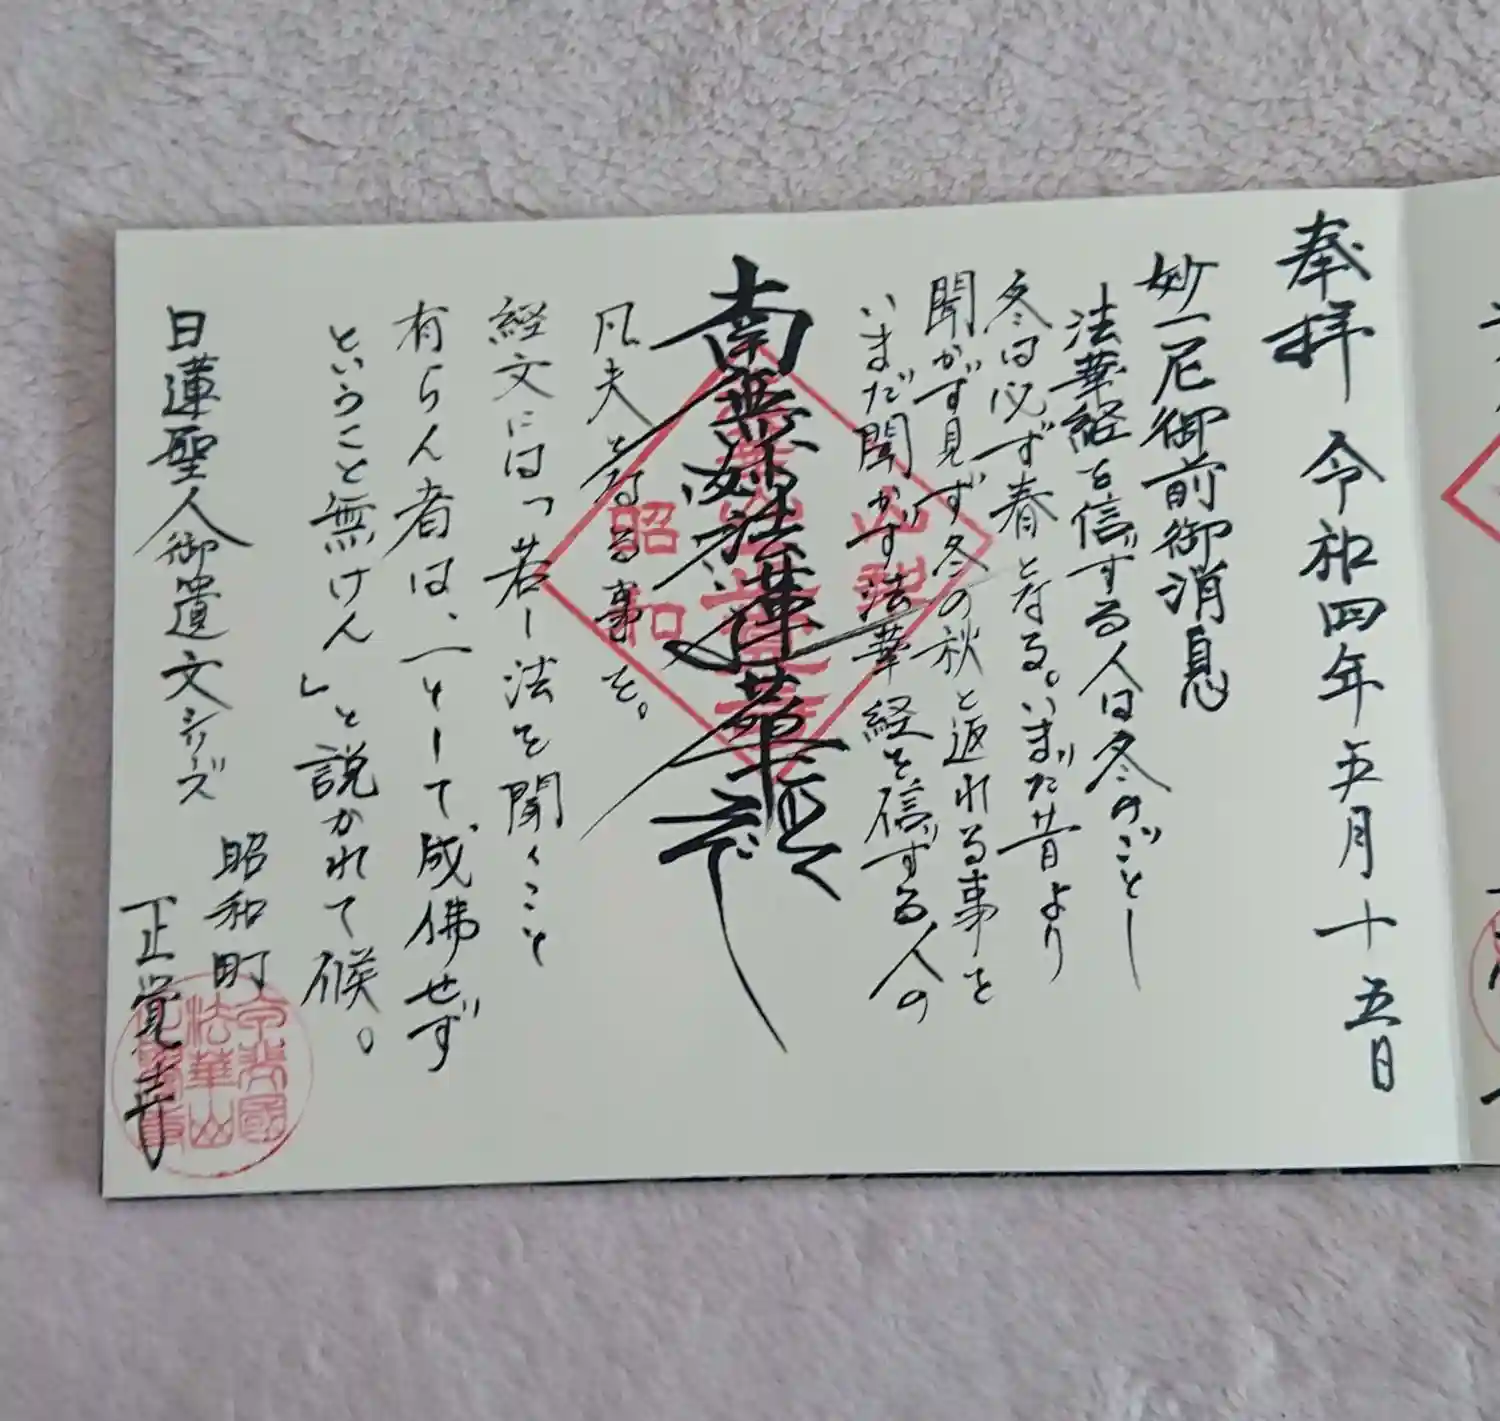 奉拝 令和四年五月十五日
妙一尼御前御消息
法華経を信ずる人は冬のごとし
冬は必ず春となる。いまだ昔より
聞かず見ず冬の秋と返れる事を
いまだ聞かず法華経を信ずる人の
南無妙法蓮華経
凡夫となる事を。
経文には「若し法を聞くこと
有らん者は、一として成佛せず
ということ無けん」と説かれて候。
日蓮聖人御遺文シリーズ
昭和町
正覚寺
昭和
法華山